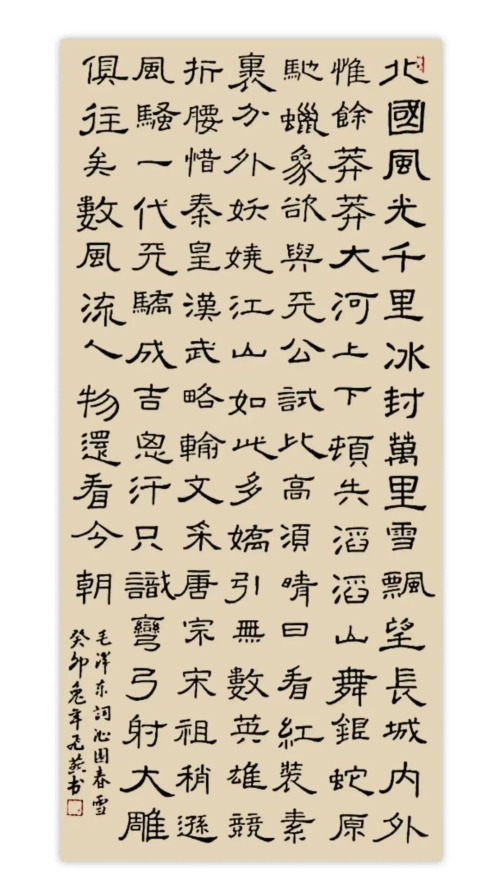 北國風光千里冰封萬里雪飄望長城内外
惟餘莽莽大河上下頓失滔滔山舞銀蛇原
馳蠟象欲與天公試比高須晴日看紅裝素
裹分外妖嬈江山如此多嬌引無數英雄競
折腰惜秦皇漢武略輸文采唐宗宋祖稍遜
風騷一代天驕成吉思汗只識彎弓射大雕
俱往矣數風流人物還看今朝
毛澤東詞沁園春雪
癸卯兔年飛燕书